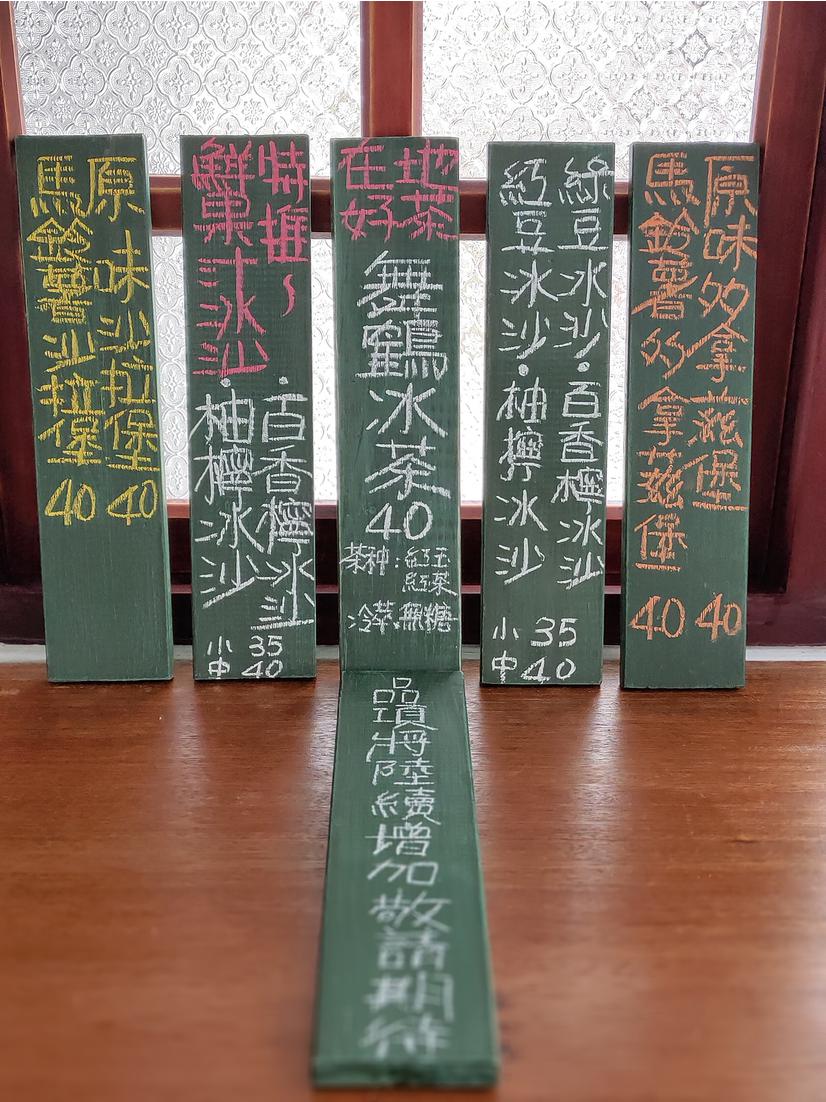 原味多拿茲堡 40
馬鈴薯多拿茲堡 40
綠豆冰沙
·百香檸冰沙
紅豆冰沙
·柚檸冰沙
小 35
中 40
在地
好茶
舞鶴冰茶
40
茶种：紅玉
紅茶
冷萃、無糖
特推~
鮮果汁冰沙
·百香檸冰沙
·柚檸冰沙
小 35
中 40
原味沙拉堡 40
馬鈴薯沙拉堡 40
品項將陸續增加敬請期待